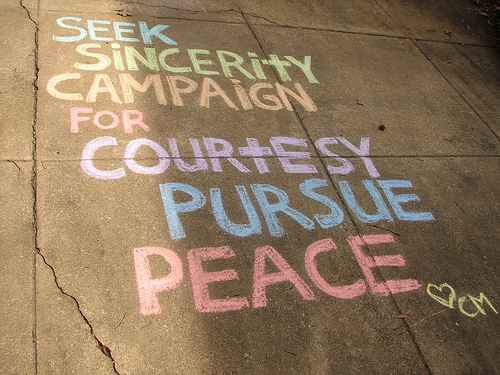 SEEK
SiNCERitY
CAMPAiGN
FOR
COURtESY
PURSUE
PEACE
♡CM